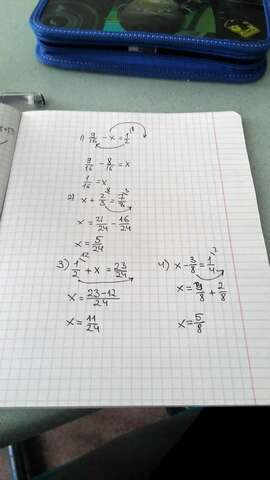 1) 9/16 - x = 1/2 ⁸
9/16 - 8/16 = x
1/16 = x
2) x + 2/3 ⁸ = 7/8 ³
x = 21/24 - 16/24
x = 5/24
3) 1/2 ¹² + x = 23/24
x = 23-12/24
x = 11/24
4) x - 3/8 = 1/4 ²
x = 3/8 + 2/8
x = 5/8